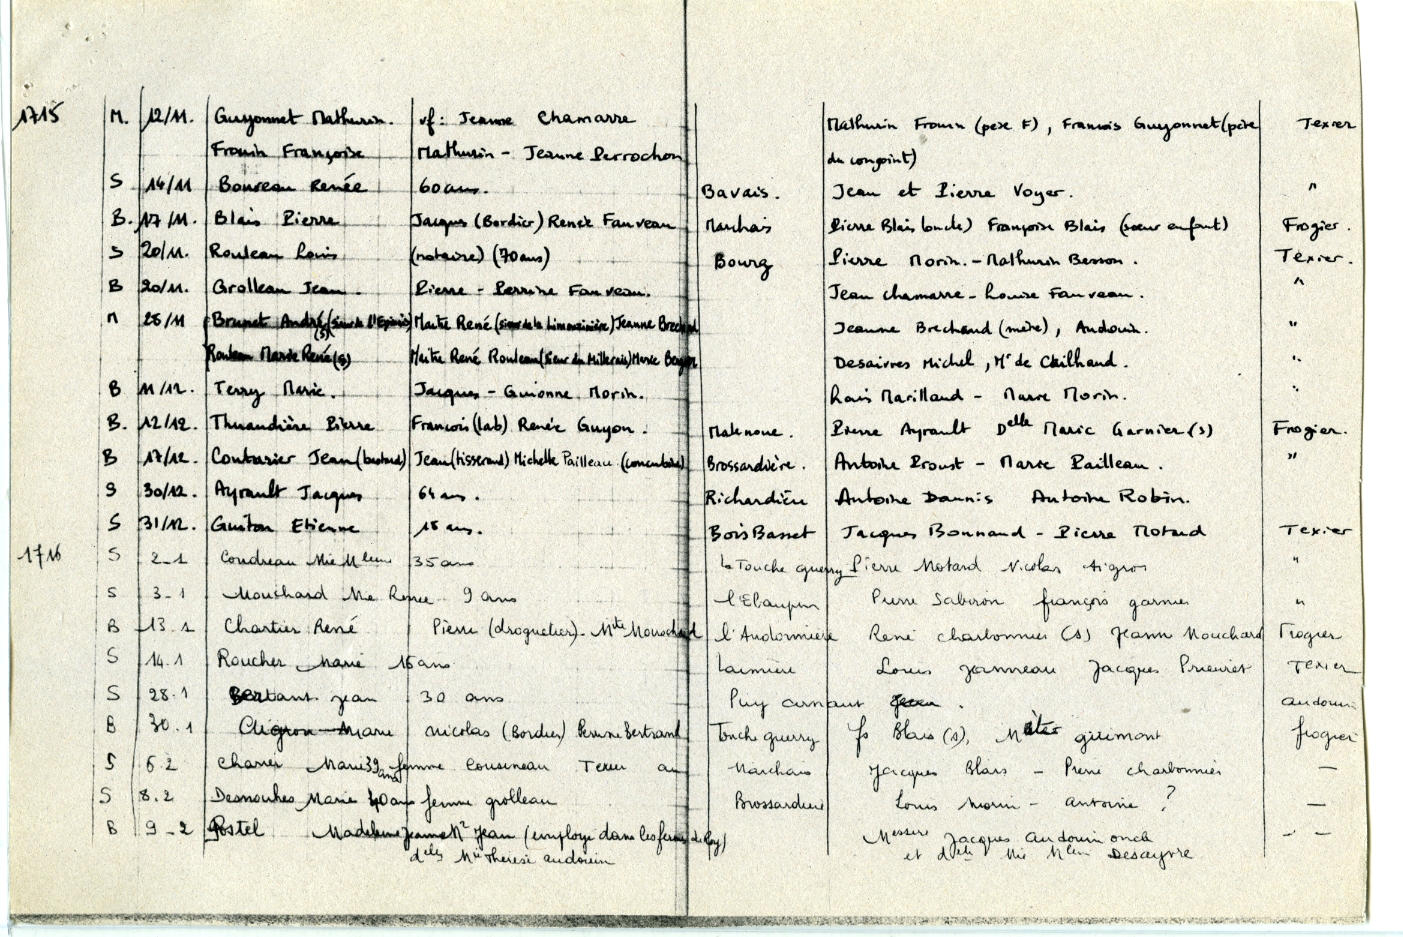 1715 M. 12/11. Guyonnet Mathurin. vf: Jeanne Chamarre Mathurin Frouin (père F), François Guyonnet (père Texier
Frouin Françoise Mathurin - Jeanne Perrochon du conjoint)
S 14/11 Bonneau Renée 60 ans. Bavais. Jean et Pierre Voyer. "
B. 17/11. Blais Pierre Jacques (Bordier) Renée Fauveau Marchais Pierre Blais (oncle) Françoise Blais (sœur enfant) Frogier.
S 20/11. Rouleau Louis (notaire) (70 ans) Bourg Pierre Morin. - Mathurin Besson. Texier.
B 20/11. Grolleau Jean. Pierre - Perrine Fauveau. Jean Chamarre - Louise Fauveau. "
M 28/11 Brunet André (sieur de l'Epinais) (S) Maître René (sieur de la Limouzinière) Jeanne Brechaud Jeanne Brechaud (mère), Audouin. "
Rouleau Marie René (S) Maître René Rouleau (sieur du Millerais) Marie Desaivres Michel, Mr de Cuilhaud. "
B 11/12. Terry Marie. Jacques - Guionne Morin. Louis Marilland - Marie Morin. "
B. 12/12. Thuaudière Pierre François (lab) Renée Guyon. Malenoue. Pierre Ayrault Delle Marie Garnier (s) Frogier.
B 17/12. Couturier Jean (bastard) Jean (tisserand) Michelle Pailleau (concubine) Brossardière. Antoine Proust - Marie Pailleau. "
S 30/12. Ayrault Jacques 64 ans. Richardière Antoine Dannis Antoine Robin.
S 31/12. Guiton Etienne 18 ans. Bois Basset Jacques Bonnaud - Pierre Motard Texier
1716 S 2-1 Coudreau Mie Mleine 35 ans la Touche querry Pierre Motard Nicolas Aigron "
S 3-1 Mouchard Mie Renée 9 ans l'Ebaupin Pierre Sabiron françois garnier "
B 13.1 Chartier René Pierre (droguetier). Mite Mouchard l'Audonnière René charbonnier (s) Jeann Mouchard Frogier
S 14.1 Roucher Marie 16 ans Laimière Louis Jeanneau Jacques Prieuret Texier
S 28.1 jean 30 ans Puy . audouin
B 30.1 Marie nicolas (Bordier) Perrine Bertrand Touche querry fs Blais (s), guimont frogier
S 6.2 Charrier Marie 39 ans femme Cousineau Texier Marchais Jacques Blais - Pierre charbonnier —
S 8.2 Desnouhes Marie 40 ans femme grolleau Brossardiere Louis Morin - Antoine ? —
B 9-2 Postel Madeleine Jeanne Mr Jean (employe dans les fermes du Roy) Messire Jacques audouin oncle - —
delle Mie Thérèse audouin et delle Mie Mleine Desayvre